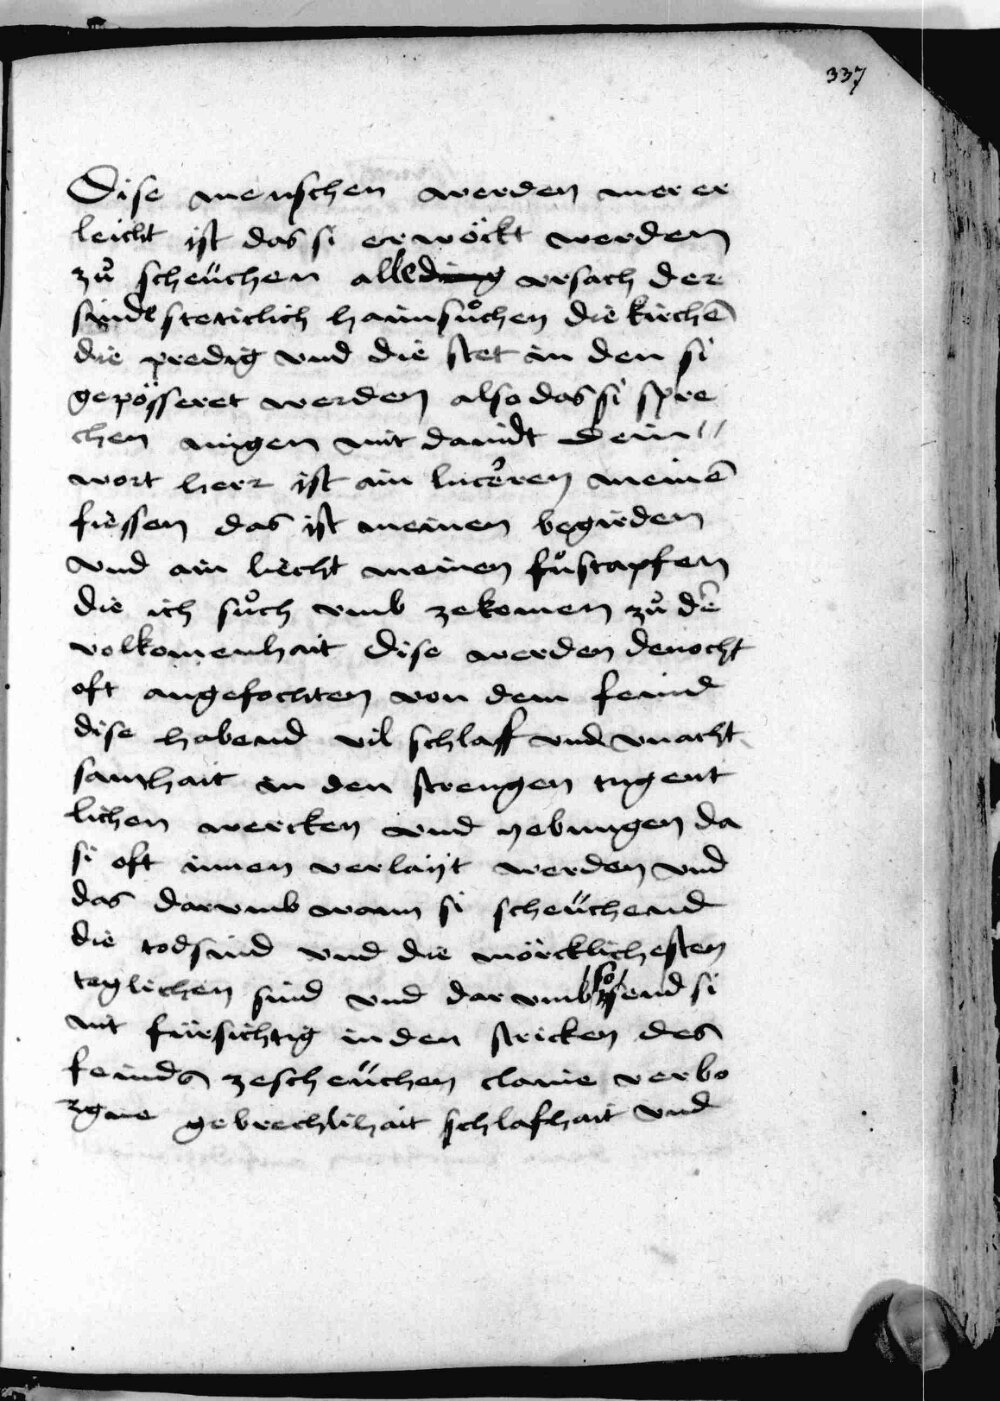 337
Dise menschen werden mer er
leicht ist das si erwöckt werden
zů scheüchen alle ursach der
sind steticlich haimsůchen die kirchē
die predig vnd die stet in den si
gepösseret werden also das si spre
chen mugen mit dauidt Dein
wort herr ist ain luceren meinē
fiessen das ist meinen begirden
vnd ain liecht meinen fůstapfen
die ich sůch vmb zekomen zů dē
volkomenhait dise werden denocht
oft angefochten von dem feind
dise habend vil schlaff vnd vnacht
samhait in den strengen tugent
lichen wercken vnd yebungen da
si oft innen verlaijt werden vnd
das darumb wann si scheüchend
die todsind vnd die mörcklichesten
teglichen sind vnd darumb so send si
nit fürsichtig in den stricken des
feinds zescheüchen claine verbo
rgne gebrechlihait schlafhait vnd